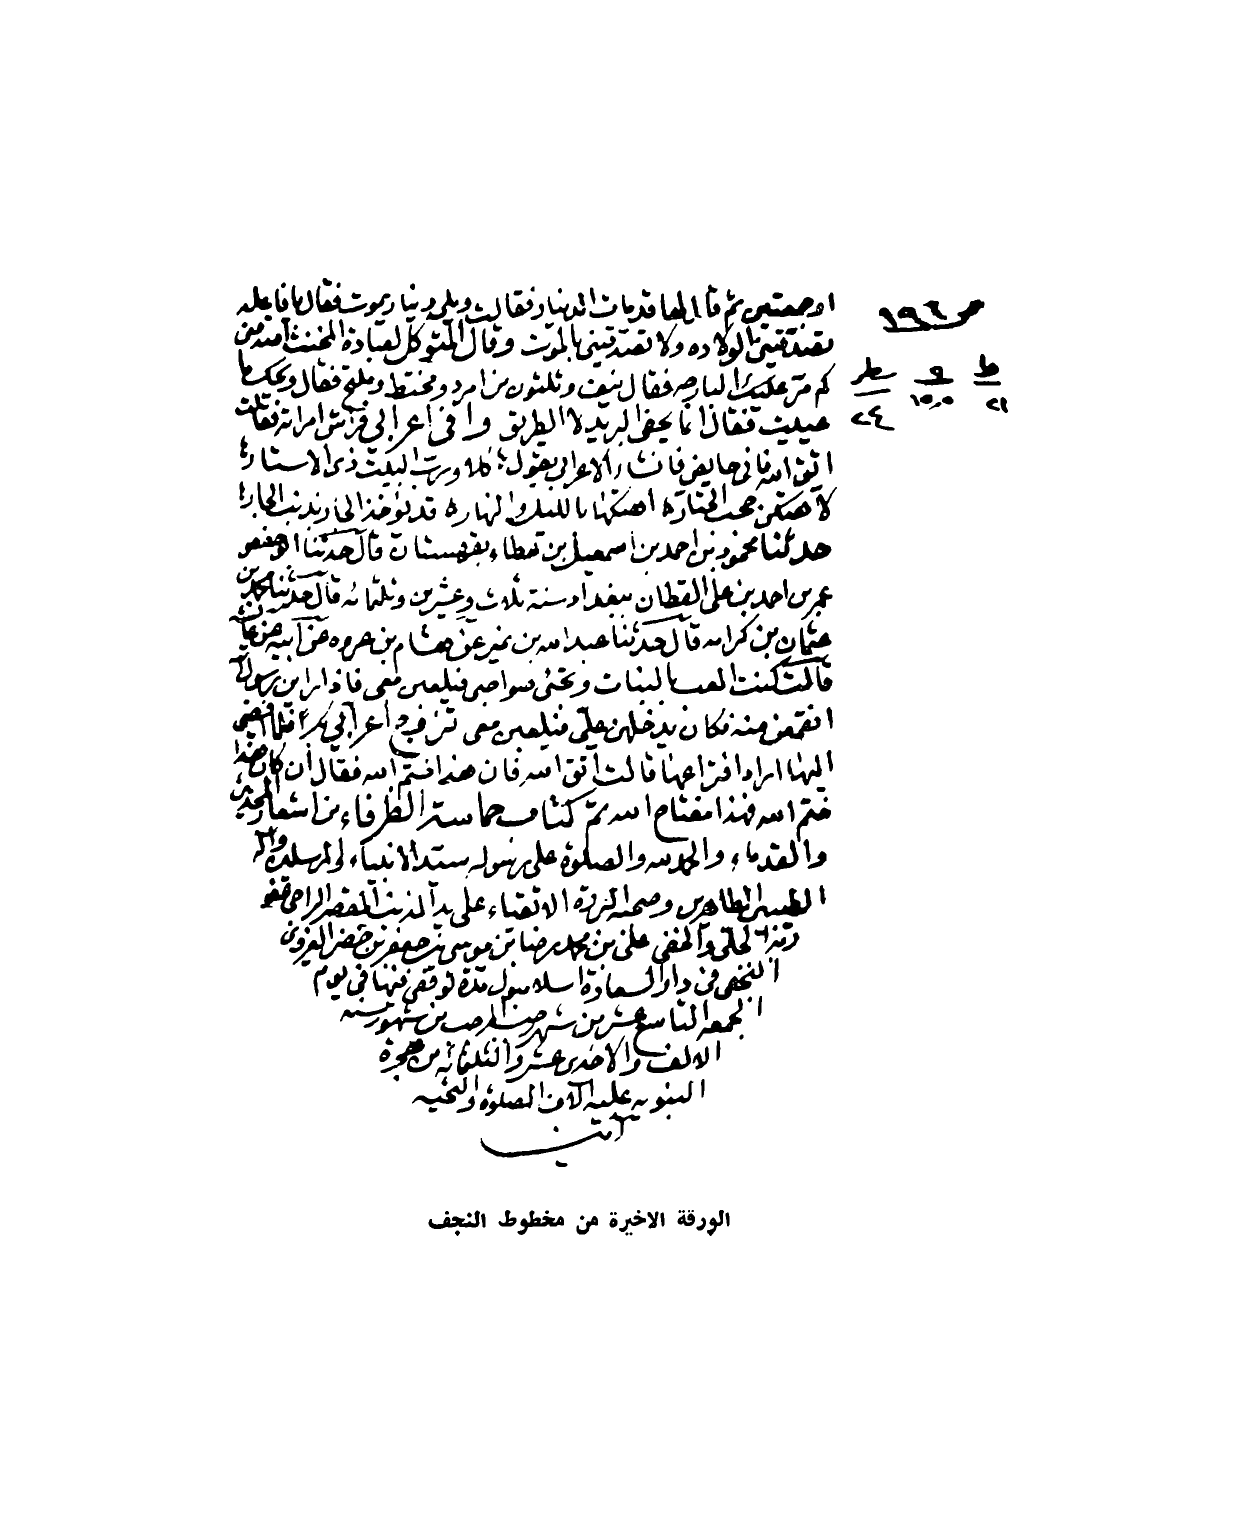 اوجعتين ثم قال لها قد مات الدينار فقالت ويلي دينار يموت فقال يا فاعله
تصدقيني بالولاده ولا تصدقيني بالموت وقال المتوكل لعبادة المخنث
كم مر عليك البارحه فقال نيف وثلثون من امرد ومختط وملتح فقال ويحك
فقال انما يحفى البريد لا الطريق وافى اعرابي فراش امراته فقالت
اتق الله فاني حايض فانشاء الاعرابي يقول كلا ورب البيت ذي الاستار
لاهتكن الحتاره قد يؤخذ الجار بذنب الجار
حدثنا محمود بن احمد بن اسمعيل بن بقهستان قال حدثنا ابو حفص
عمر بن احمد بن على القطان ببغداد سنة ثلاث وعشرين وثلثمائه قال حدثنا محمد بن
عثمان بن كرامه قال حدثنا عبد الله بن نمير عن هشام بن عروه عن ابيه عن عائشة
قالت كنت العب بالبنات وتجئ صواحبي فيلعبن معي فاذا راين رسول الله
انقمعن منه فكان يدخلهن علي فيلعبن معي تزوج اعرابي بكرا فلما افضى
اليها اراد افتراعها قالت اتق الله فان هذا ختم الله فقال ان كان هذا
ختم الله فهذا مفتاح الله تم كتاب حماسة الظرفاء من اشعار المحدثين
والقدماء والحمد لله والصلوة على رسوله سيد الانبياء والمرسلين واله
الطيبين الطاهرين وصحبه البررة الاتقياء على يد المذنب المقصر الراجي عفو
ربه الجلي والخفي علي بن محمد رضا بن موسى بن جعفر بن خضر
النجفي في دار السعادة اسلامبول مدة توقفي فيها في يوم
الجمعه التاسع عشر من شهر رجب المرجب من شهور سنه
الالف والاحدى عشر والثلثمائه من هجرة
النبويه عليه الاف الصلوة والتحيه
امين
ص ١٩٦
ط و سطر
٢١ ١٥٫٥ ٢٤
الورقة الاخيرة من مخطوط النجف